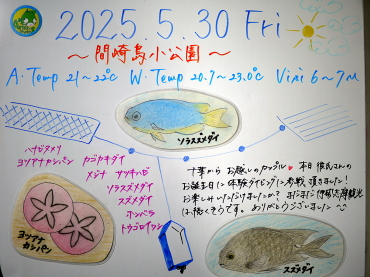 2025.5.30 Fri
～間崎島小公園～
A.Temp 21～22℃ W.Temp 20.7～23.0℃ Visi 6～7m
ソラスズメダイ
ハナビラメリ
ヨツアナカシパン
カゴカキダイ
メジナ
サツキハゼ
ソラスズメダイ
スズメダイ
ホンベラ
トウゴロイワシ
千葉から お越しのカップル♥ 本日 彼氏さんの
お誕生日に体験ダイビングに参戦頂きました!
お楽しみいただけましたか? まだまだ 伊勢志摩観光
は続くそうです。ありがとうございました～
ヨツアナ
カシパン
スズメダイ